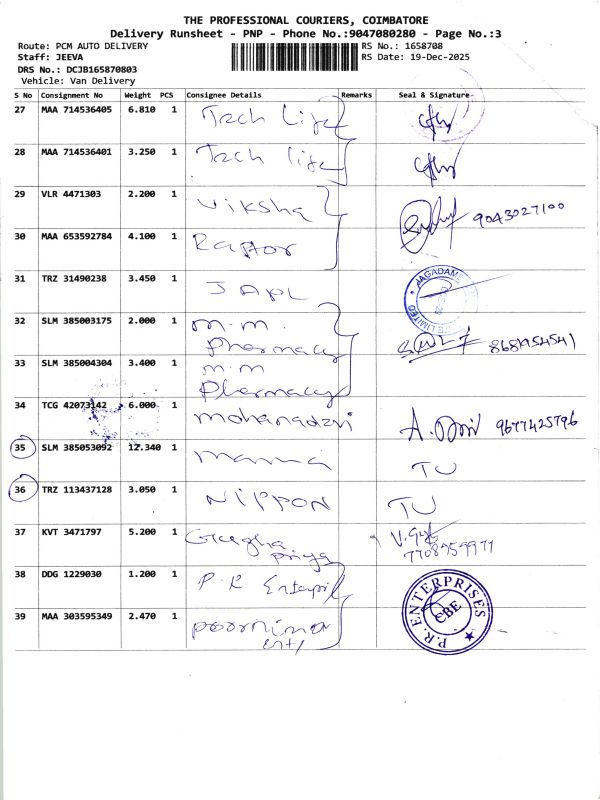 THE PROFESSIONAL COURIERS, COIMBATORE
Delivery Runsheet - PNP - Phone No.:9047080280 - Page No.:3
Route: PCM AUTO DELIVERY RS No.: 1658708
Staff: JEEVA RS Date: 19-Dec-2025
DRS No.: DCJB165870803
Vehicle: Van Delivery
S No Consignment No Weight PCS Consignee Details Remarks Seal & Signature
27 MAA 714536405 6.810 1 Tech Life
28 MAA 714536401 3.250 1 Tech life
29 VLR 4471303 2.200 1 Viksha 9043027100
30 MAA 653592784 4.100 1 Raptor
31 TRZ 31490238 3.450 1 JAPL
32 SLM 385003175 2.000 1 m.m.
Pharmacy
33 SLM 385004304 3.400 1 m.m
Pharmacy
34 TCG 42073142 6.000 1 9677425796
35 SLM 385053092 12.340 1 TU
36 TRZ 113437128 3.050 1 NIPPON TU
37 KVT 3471797 5.200 1
Priya
38 DDG 1229030 1.200 1 P.R
39 MAA 303595349 2.470 1 poornima
P.R. ENTERPRISES
CBE